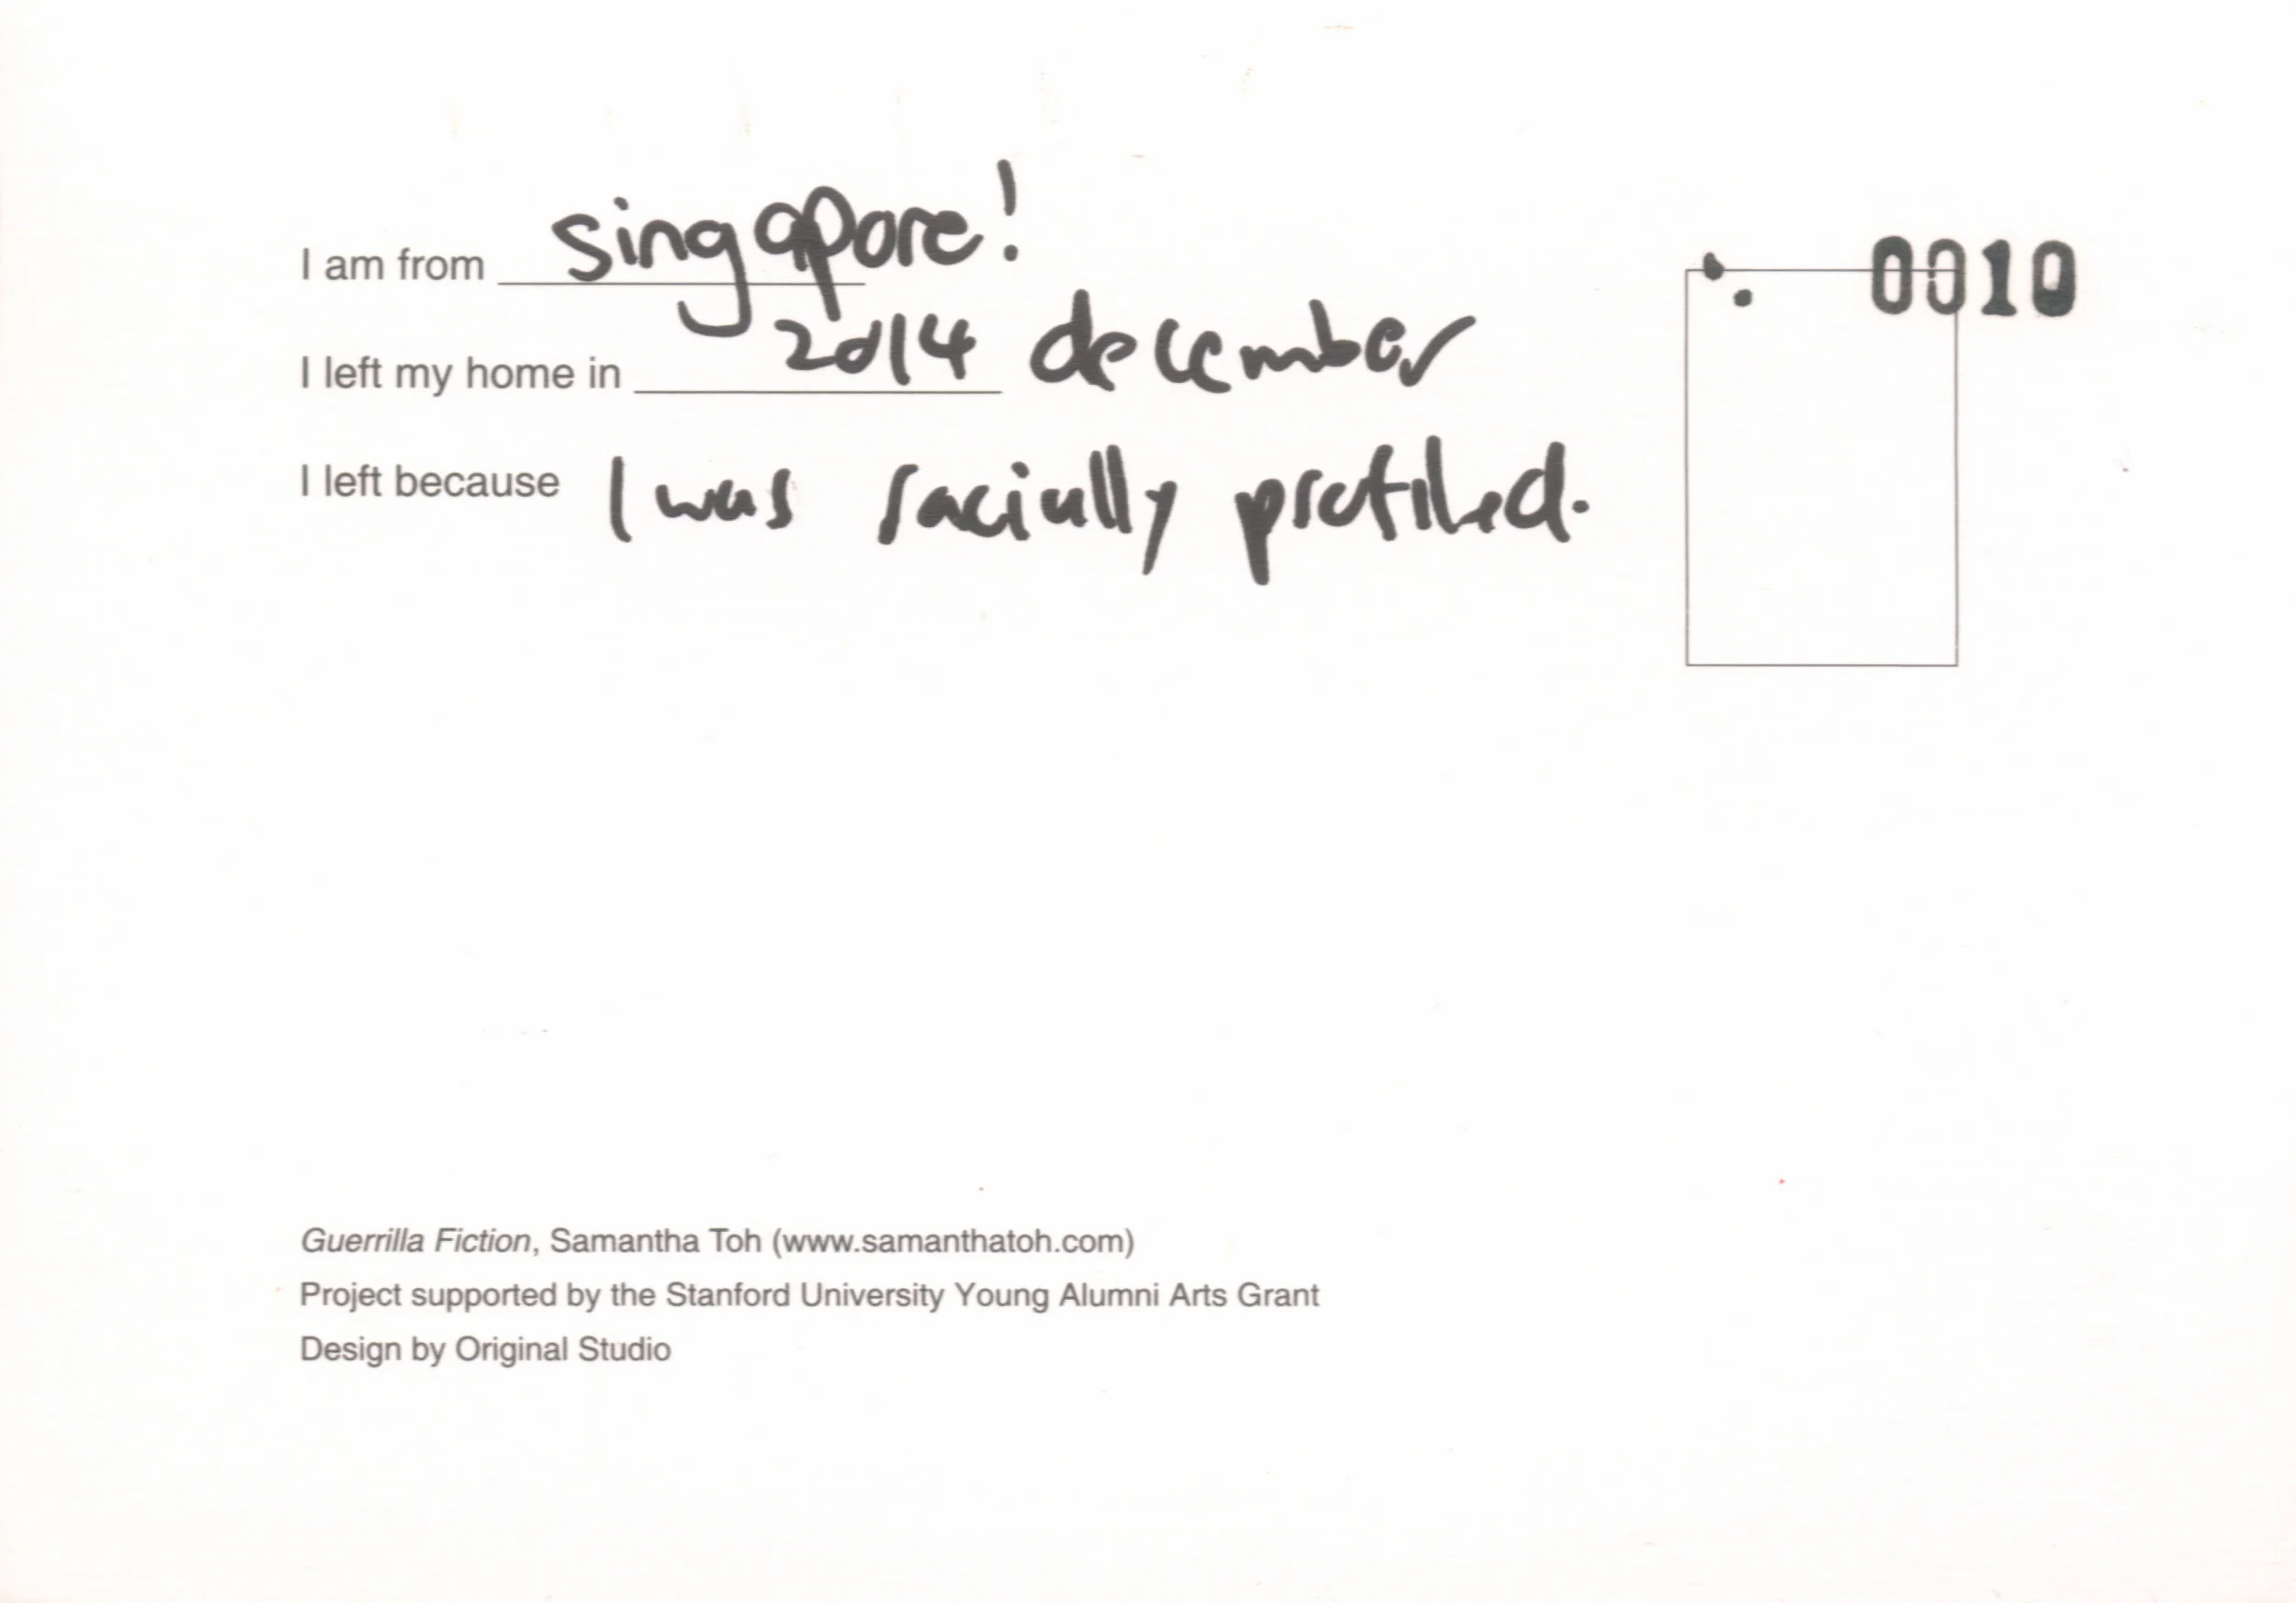 I am from singapore!
0010
I left my home in 2014 december
I left because I was racially profiled.
Guerrilla Fiction, Samantha Toh (www.samanthatoh.com)
Project supported by the Stanford University Young Alumni Arts Grant
Design by Original Studio